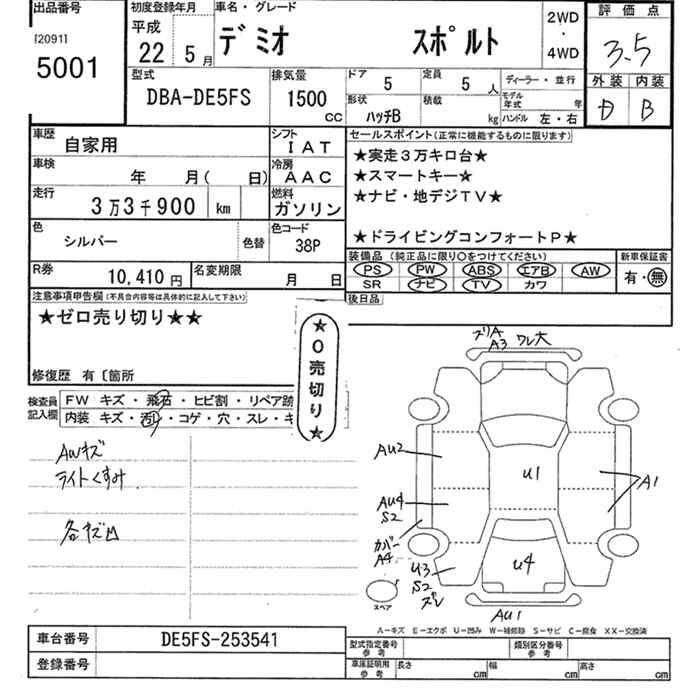 出品番号
[2091]
5001
初度登録年月
平成
22 5月
車名・グレード
デミオ スポルト
2WD
・
4WD
評価点
3.5
外装 内装
D B
型式
DBA-DE5FS
排気量
1500
CC
ドア 5
定員 5 人
ディーラー・並行
形状 ハッチB
積載 kg
モデル年式 年
ハンドル 左・右
車歴 自家用
シフト IAT
車検 年 月( 日)
冷房 AAC
走行 3万3千900 km
燃料 ガソリン
色 シルバー
色替
色コード 38P
R券 10,410円
名変期限 月 日
セールスポイント(正常に機能するものに限ります)
★実走3万キロ台★
★スマートキー★
★ナビ・地デジTV★
★ドライビングコンフォートP★
装備品(純正品に限り○をつけてください)
PS PW ABS エアB AW
SR ナビ TV カワ
新車保証書
有・無
後日品
注意事項申告欄(不具合内容等は具体的に記入して下さい)
★ゼロ売り切り★★
修復歴 有〔箇所
★0売切り★
検査員
記入欄
FW キズ・飛石・ヒビ割・リペア跡
内装 キズ・汚レ・コゲ・穴・スレ・キ
AWキズ
ライトくすみ
各キズ凹
ズリA
A3
ワレ大
AU2
U1
A1
AU4
S2
カバー
A4
U3
S2
ズレ
U4
AU1
スペア
A-キズ E-エクボ U-凹み W-補修跡 S-サビ C-腐食 XX-交換済
車台番号 DE5FS-253541
登録番号
型式指定番号
参考
類別区分番号
参考
車庫証明用
参考
長さ cm
幅 cm
高さ cm